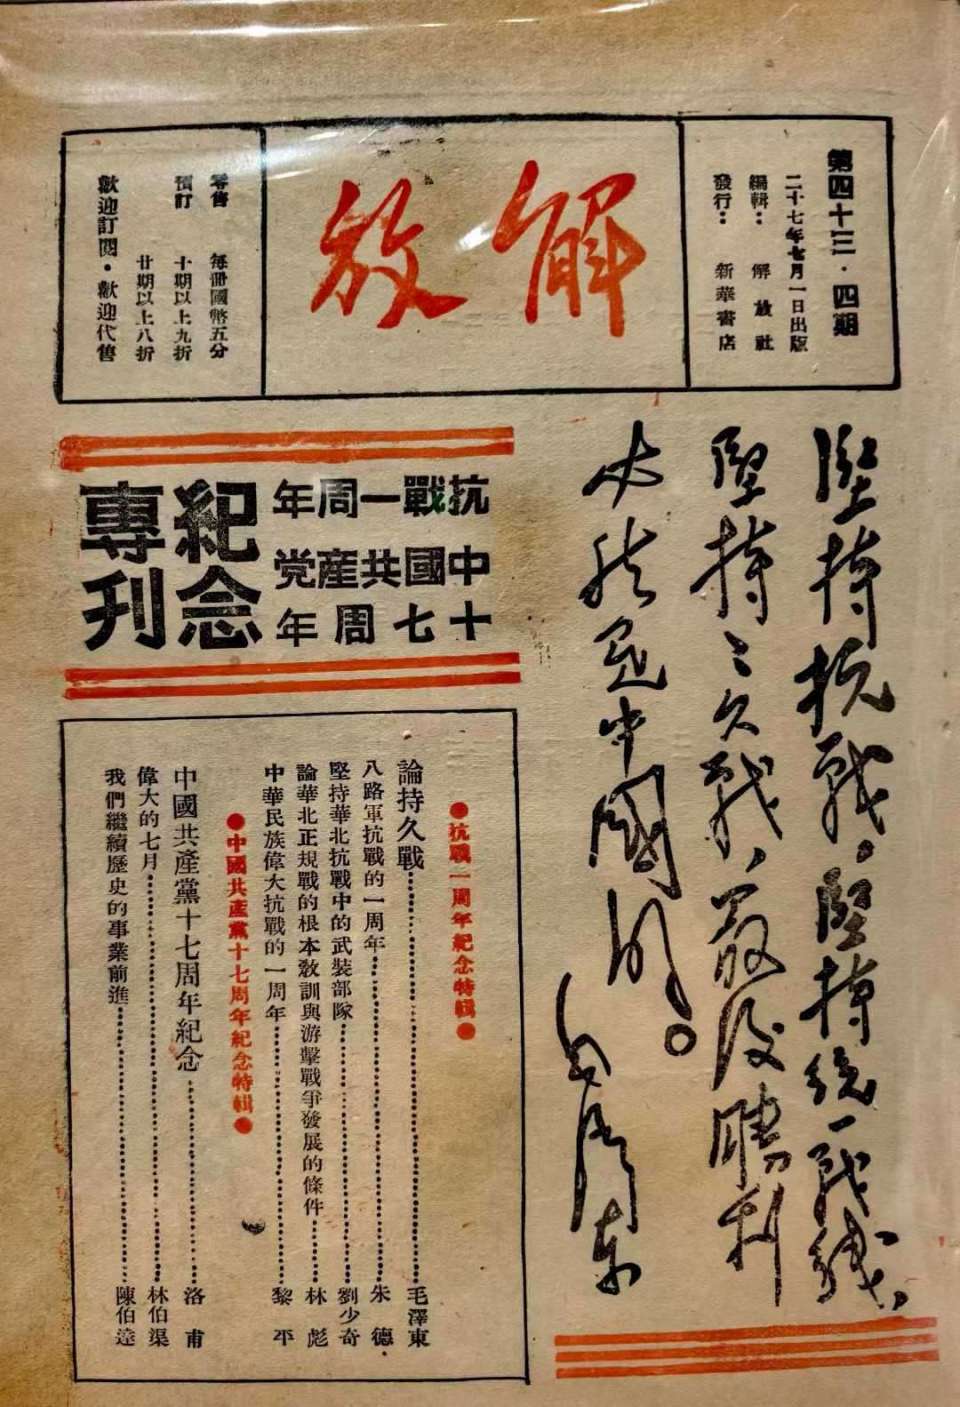 第四十三·四期
二十七年七月一日出版
編輯：解放社
發行：新華書店
解放
零售 每冊國幣五分
預訂 十期以上九折
廿期以上八折
歡迎訂閱·歡迎代售
堅持抗战。堅持統一战线。
堅持持久战，最後勝利
必然是中國的。
毛澤东
抗戰一周年
中國共產党
十七周年
紀念
專刊
●抗戰一周年紀念特輯●
論持久戰……毛澤東
八路軍抗戰的一周年……朱德
堅持華北抗戰中的武裝部隊……劉少奇
論華北正規戰的根本教訓與游擊戰爭發展的條件……林彪
中華民族偉大抗戰的一周年……黎平
●中國共產黨十七周年紀念特輯●
中國共產黨十七周年紀念……洛甫
偉大的七月……林伯渠
我們繼續歷史的事業前進……陳伯達